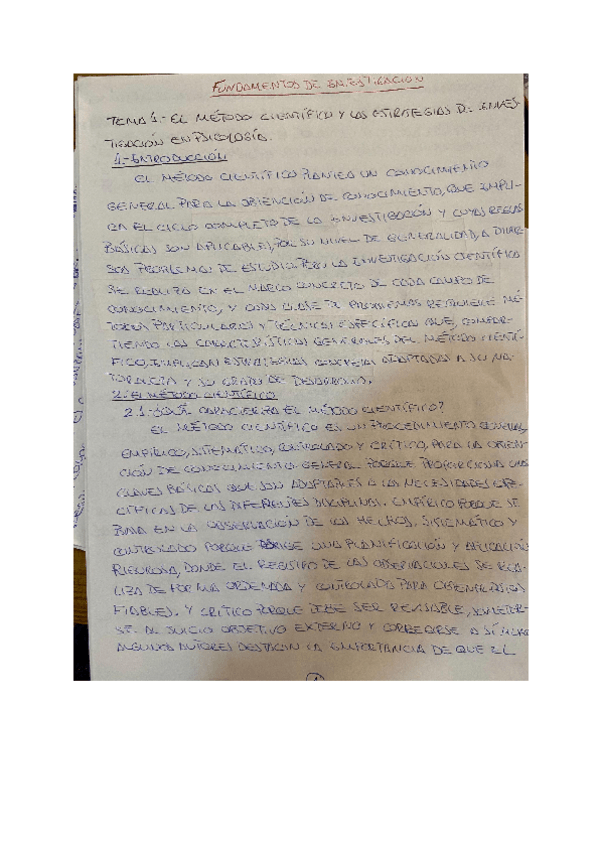 FUNDAMENTOS DE INVESTIGACIÓN
TEMA 1.- EL MÉTODO CIENTÍFICO Y LAS ESTRATEGIAS DE INVES-
TIGACIÓN EN PSICOLOGÍA.
1.- INTRODUCCIÓN
EL MÉTODO CIENTÍFICO PLANTEA UN CONOCIMIENTO
GENERAL PARA LA OBTENCIÓN DE CONOCIMIENTO, QUE IMPLI-
CA EL CICLO COMPLETO DE LA INVESTIGACIÓN Y CUYAS REGLAS
BÁSICAS SON APLICABLES, POR SU NIVEL DE GENERALIDAD, A DIVER-
SOS PROBLEMAS DE ESTUDIO. PERO LA INVESTIGACIÓN CIENTÍFICA
SE REALIZA EN EL MARCO CONCRETO DE CADA CAMPO DE
CONOCIMIENTO, Y CADA CLASE DE PROBLEMAS REQUIERE MÉ-
TODOS PARTICULARES Y TÉCNICAS ESPECÍFICAS QUE, COMPAR-
TIENDO LAS CARACTERÍSTICAS GENERALES DEL MÉTODO CIENTÍ-
FICO, IMPLICAN ESTRATEGIAS CONCRETAS ADAPTADAS A SU NA-
TURALEZA Y SU GRADO DE DESARROLLO.
2.- EL MÉTODO CIENTÍFICO
2.1.- ¿QUÉ CARACTERIZA EL MÉTODO CIENTÍFICO?
EL MÉTODO CIENTÍFICO ES UN PROCEDIMIENTO GENERAL,
EMPÍRICO, SISTEMÁTICO, CONTROLADO Y CRÍTICO, PARA LA OBTEN-
CIÓN DE CONOCIMIENTO. GENERAL PORQUE PROPORCIONA UNAS
CLAVES BÁSICAS QUE SON ADAPTABLES A LAS NECESIDADES ESPE-
CÍFICAS DE LAS DIFERENTES DISCIPLINAS. EMPÍRICO PORQUE SE
BASA EN LA OBSERVACIÓN DE LOS HECHOS. SISTEMÁTICO Y
CONTROLADO PORQUE EXIGE UNA PLANIFICACIÓN Y APLICACIÓN
RIGUROSA, DONDE EL REGISTRO DE LAS OBSERVACIONES SE REA-
LIZA DE FORMA ORDENADA Y CONTROLADA PARA OBTENER DATOS
FIABLES. Y CRÍTICO PORQUE DEBE SER REVISABLE, SOMETER-
SE AL JUICIO OBJETIVO EXTERNO Y CORREGIRSE A SÍ MISMO.
ALGUNOS AUTORES DESTACAN LA IMPORTANCIA DE QUE EL
1